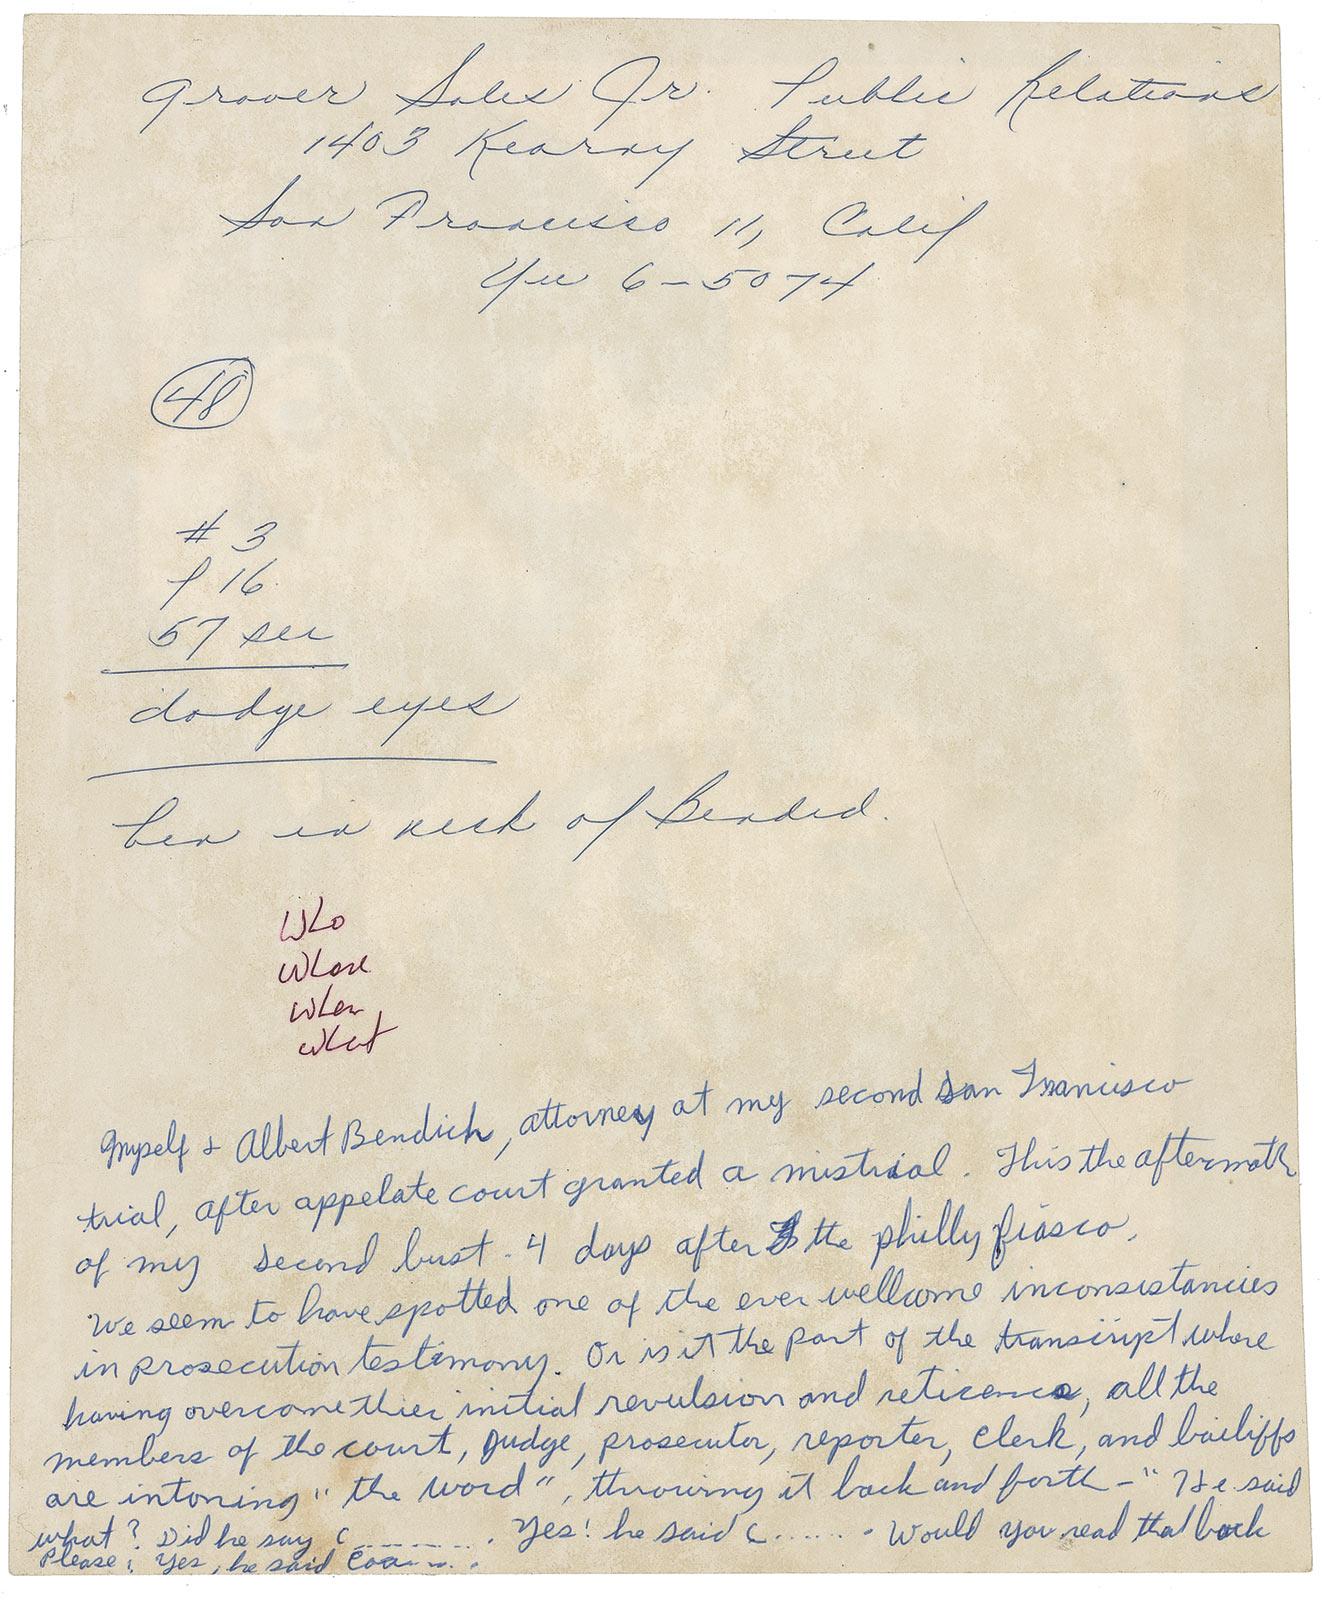 Grover Sales Jr. Public Relations
1403 Kearny Street
San Francisco 11, Calif
Yu 6-5074
48
# 3
P 16
57 sec
dodge eyes
in neck of
Who
Whose
When
What
Myself + Albert Bendich, attorney at my second San Francisco
trial, after appelate court granted a mistrial. This the aftermath
of my second bust - 4 days after the philly fiasco.
We seem to have spotted one of the ever wellcome inconsistancies
in prosecution testimony. Or is it the part of the transcript where
having overcome thier initial revulsion and reticence, all the
members of the court, Judge, prosecutor, reporter, clerk, and bailiffs
are intoning "the word", throwing it back and forth - "He said
what? Did he say C......... Yes! he said C....... Would you read that back
Please? Yes, he said